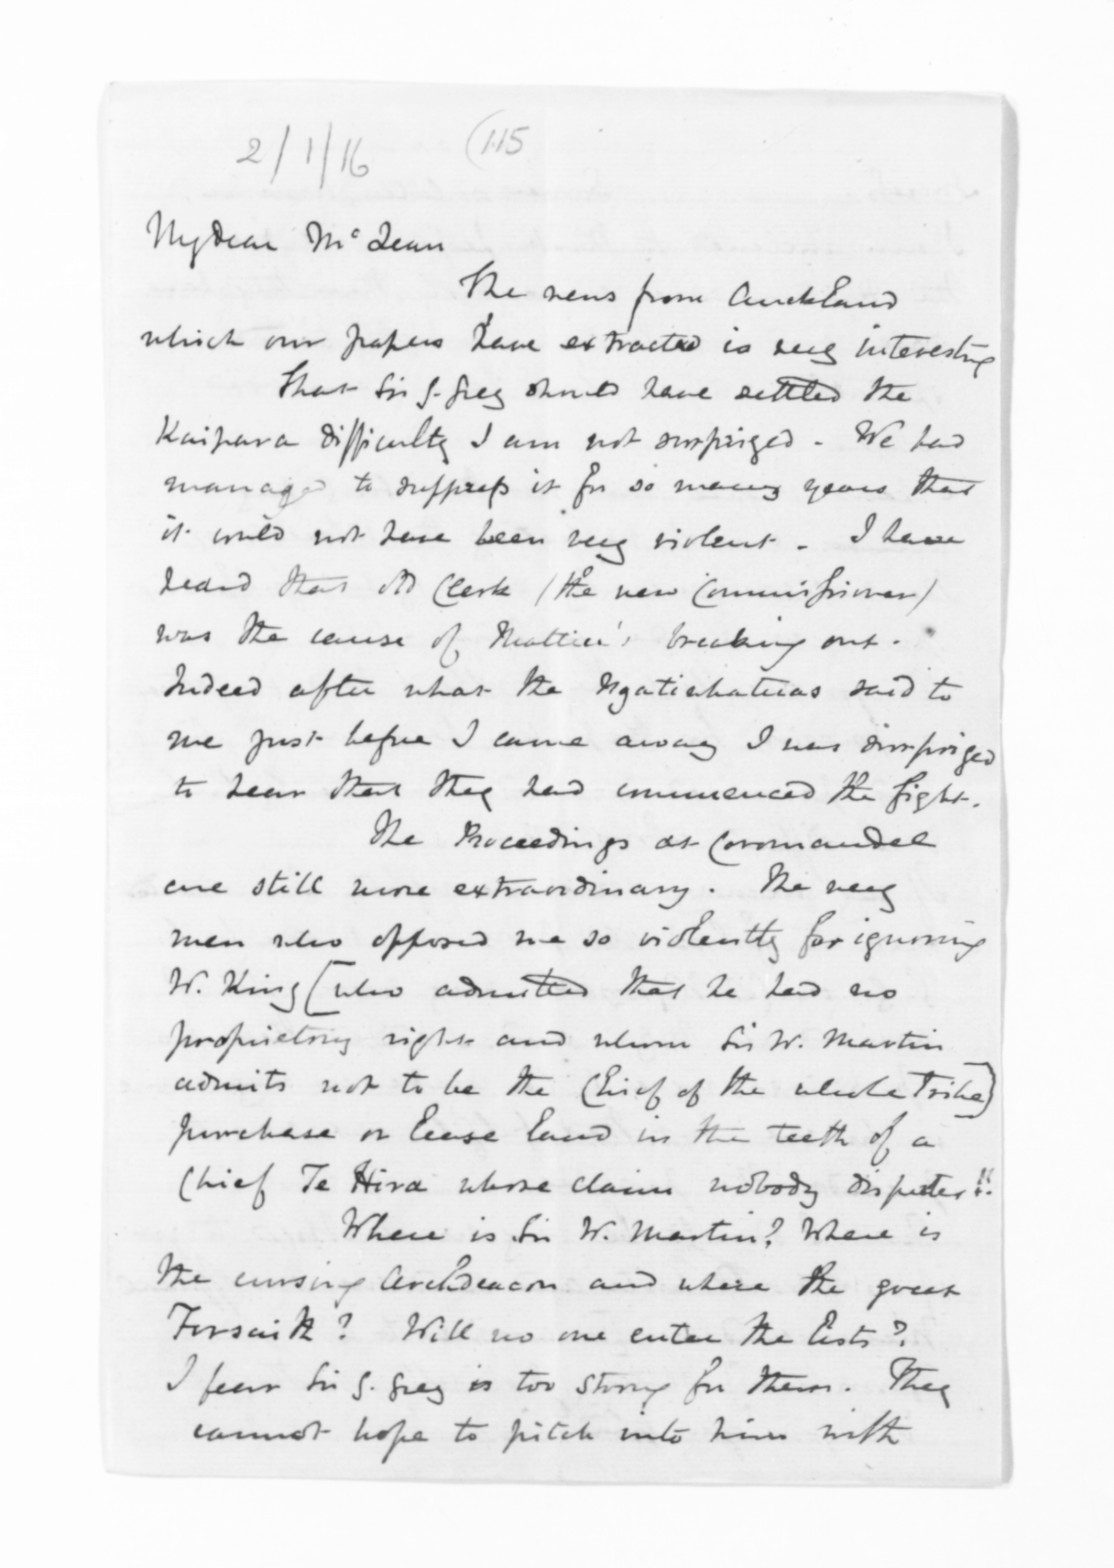 2/1/16 (115
My dear McLean
The news from Auckland
which our papers have extracted is very interesting
That Sir G. Grey should have settled the
Kaipara difficulty I am not surprized - We had
managed to suppress it for so many years that
it could not have been very violent - I have
heard that Old Clerk (the new Commissioner)
was the cause of Mattiu's breaking out.
Indeed after what the Ngatiwhatuas said to
me just before I came away I was surprized
to hear that they had commenced the fight.
The Proceedings at Coromandel
are still more extraordinary. The very
men who opposed me so violently for ignoring
W. King [who admitted that he had no
proprietory right and whom Sir W. Martin
admits not to be the Chief of the whole Tribe]
purchase or lease land in the teeth of a
Chief Te Hira whose claim nobody disputes!!
Where is Sir W. Martin? Where is
the cursing Archdeacon and where the great
Forsaith? Will no one enter the lists?
I fear Sir G. Grey is too strong for them. They
cannot hope to pitch into him with